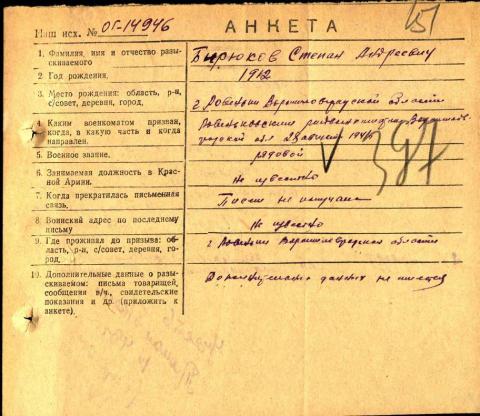 Наш исх. № ОГ-14946
АНКЕТА
151
1. Фамилия, имя и отчество разыскиваемого
Бирюков Степан Андреевич
2. Год рождения,
1912
3. Место рождения: область, р-н, с/совет, деревня, город,
г. Ровеньки Ворошиловградской области
4. Каким военкоматом призван, когда, в какую часть и когда направлен.
Ровеньковским райвоенкоматом
1941
5. Военное звание.
рядовой
6. Занимаемая должность в Красной Армии.
Не известно
7. Когда прекратилась письменная связь.
Писем не получала
8. Воинский адрес по последнему письму
Не известно
9. Где проживал до призыва: область, р-н, с/совет, деревня, город.
г. Ровеньки Ворошиловградской области
10. Дополнительные данные о разыскиваемом: письма товарищей, сообщения в/ч., свидетельские показания и др. (приложить к анкете).
данных не имеется